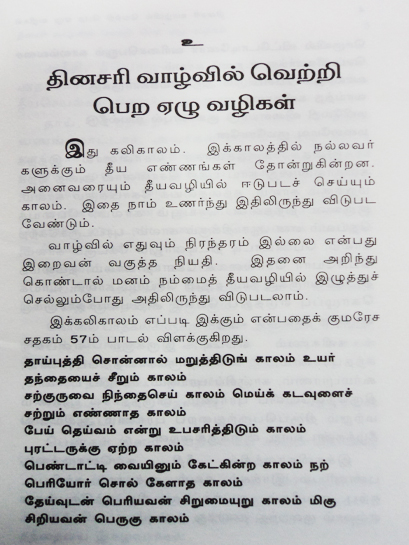 உ
தினசரி வாழ்வில் வெற்றி
பெற ஏழு வழிகள்
இது கலிகாலம். இக்காலத்தில் நல்லவர்
களுக்கும் தீய எண்ணங்கள் தோன்றுகின்றன.
அனைவரையும் தீயவழியில் ஈடுபடச் செய்யும்
காலம். இதை நாம் உணர்ந்து இதிலிருந்து விடுபட
வேண்டும்.
வாழ்வில் எதுவும் நிரந்தரம் இல்லை என்பது
இறைவன் வகுத்த நியதி. இதனை அறிந்து
கொண்டால் மனம் நம்மைத் தீயவழியில் இழுத்துச்
செல்லும்போது அதிலிருந்து விடுபடலாம்.
இக்கலிகாலம் எப்படி இக்கும் என்பதைக் குமரேச
சதகம் 57ம் பாடல் விளக்குகிறது.
தாய்புத்தி சொன்னால் மறுத்திடுங் காலம் உயர்
தந்தையைச் சீறும் காலம்
சற்குருவை நிந்தைசெய் காலம் மெய்க் கடவுளைச்
சற்றும் எண்ணாத காலம்
பேய் தெய்வம் என்று உபசரித்திடும் காலம்
புரட்டருக்கு ஏற்ற காலம்
பெண்டாட்டி வையினும் கேட்கின்ற காலம் நற்
பெரியோர் சொல் கேளாத காலம்
தேய்வுடன் பெரியவன் சிறுமையுறு காலம் மிகு
சிறியவன் பெருகு காலம்